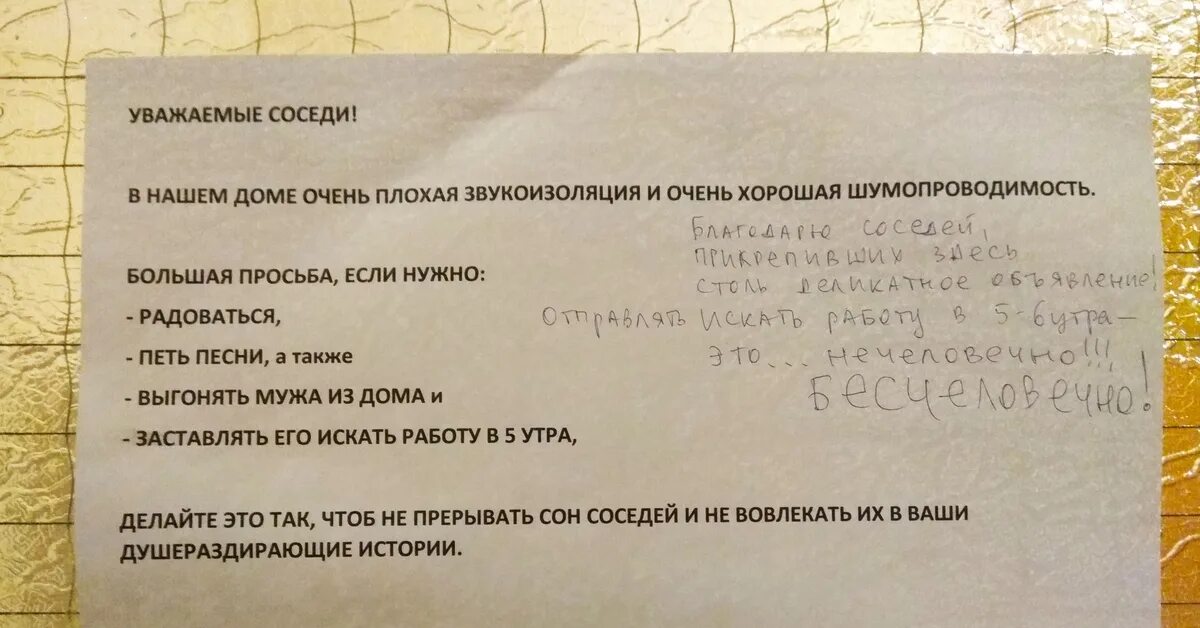 УВАЖАЕМЫЕ СОСЕДИ!
В НАШЕМ ДОМЕ ОЧЕНЬ ПЛОХАЯ ЗВУКОИЗОЛЯЦИЯ И ОЧЕНЬ ХОРОШАЯ ШУМОПРОВОДИМОСТЬ.
БОЛЬШАЯ ПРОСЬБА, ЕСЛИ НУЖНО:
- РАДОВАТЬСЯ,
- ПЕТЬ ПЕСНИ, а также
- ВЫГОНЯТЬ МУЖА ИЗ ДОМА и
- ЗАСТАВЛЯТЬ ЕГО ИСКАТЬ РАБОТУ В 5 УТРА,
ДЕЛАЙТЕ ЭТО ТАК, ЧТОБ НЕ ПРЕРЫВАТЬ СОН СОСЕДЕЙ И НЕ ВОВЛЕКАТЬ ИХ В ВАШИ
ДУШЕРАЗДИРАЮЩИЕ ИСТОРИИ.
Благодарю соседей,
прикрепивших здесь
столь деликатное объявление!
Отправлять искать работу в 5-6 утра –
это... нечеловечно!!!
Бесчеловечно!